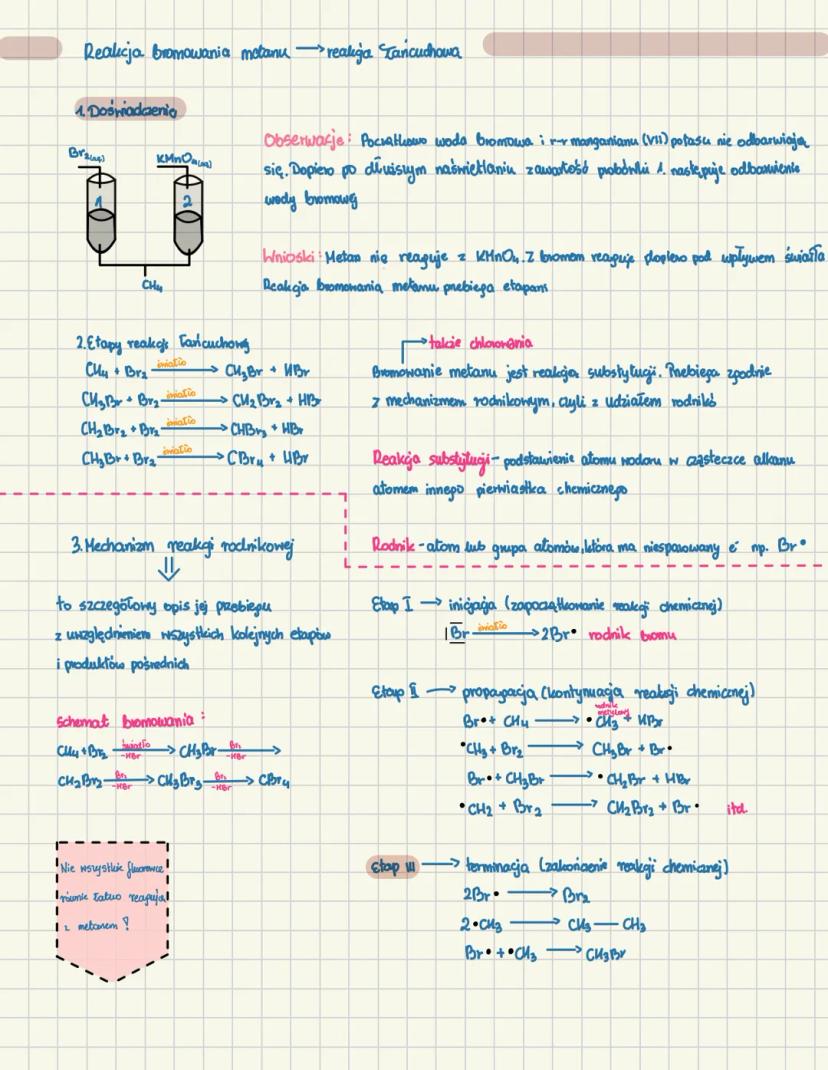 Reakcja bromowania metanu → reakcja łańcuchowa
1. Doświadczenie
Br₂(aq)
KMnO₄(aq)
1
2
CH₄
Obserwacje: Początkowo woda bromowa i r-r manganianu (VII) potasu nie odbarwiają
się. Dopiero po dłuższym naświetlaniu zawartość probówki 1. następuje odbarwienie
wody bromowej
Wnioski: Metan nie reaguje z KMnO₄. Z bromem reaguje dopiero pod wpływem światła
Reakcja bromowania metanu przebiega etapami
2. Etapy reakcji łańcuchowej
CH₄ + Br₂ światło → CH₃Br + HBr
CH₃Br + Br₂ światło → CH₂Br₂ + HBr
CH₂Br₂ + Br₂ światło → CHBr₃ + HBr
CH₃Br + Br₂ światło → CBr₄ + HBr
→ także chlorowania
Bromowanie metanu jest reakcją substytucji. Przebiega zgodnie
z mechanizmem rodnikowym, czyli z udziałem rodników
Reakcja substytucji - podstawienie atomu wodoru w cząsteczce alkanu
atomem innego pierwiastka chemicznego
Rodnik - atom lub grupa atomów, która ma niesparowany e⁻ np. Br•
3. Mechanizm reakcji rodnikowej
⇓
to szczegółowy opis jej przebiegu
z uwzględnieniem wszystkich kolejnych etapów
i produktów pośrednich
schemat bromowania:
CH₄ + Br₂ światło -HBr → CH₃Br Br₂ -HBr →
CH₂Br₂ Br₂ -HBr → CH₃Br₃ Br₂ -HBr → CBr₄
Nie wszystkie fluorowce
równie łatwo reagują
z metanem !
Etap I → inicjacja (zapoczątkowanie reakcji chemicznej)
|Br światło → 2Br• rodnik bromu
Etap II → propagacja (kontynuacja reakcji chemicznej)
rodnik metylowy
Br• + CH₄ → •CH₃ + HBr
•CH₃ + Br₂ → CH₃Br + Br•
Br• + CH₃Br → •CH₂Br + HBr
•CH₂ + Br₂ → CH₂Br₂ + Br• itd.
Etap III → terminacja (zakończenie reakcji chemicznej)
2Br• → Br₂
2•CH₃ → CH₃ — CH₃
Br• + •CH₃ → CH₃Br